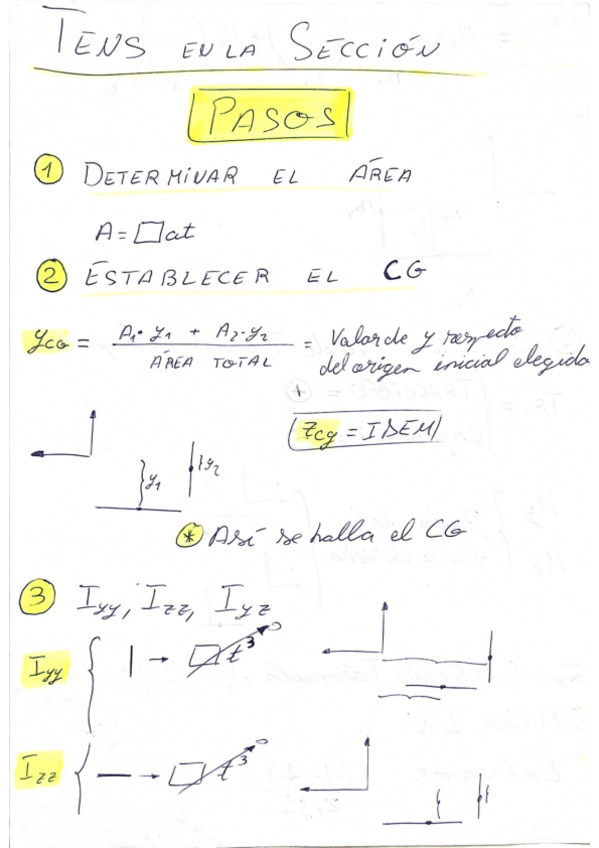 TENS EN LA SECCIÓN
PASOS
1 DETERMINAR EL ÁREA
A = □at
2 ESTABLECER EL CG
yCG = A1·y1 + A2·y2 / ÁREA TOTAL = Valor de y respecto del origen inicial elegido
zcg = IDEM
y1 y2
* Así se halla el CG
3 Iyy, Izz, Iyz
Iyy { | → □t³ 0
Izz { — → □t³ 0